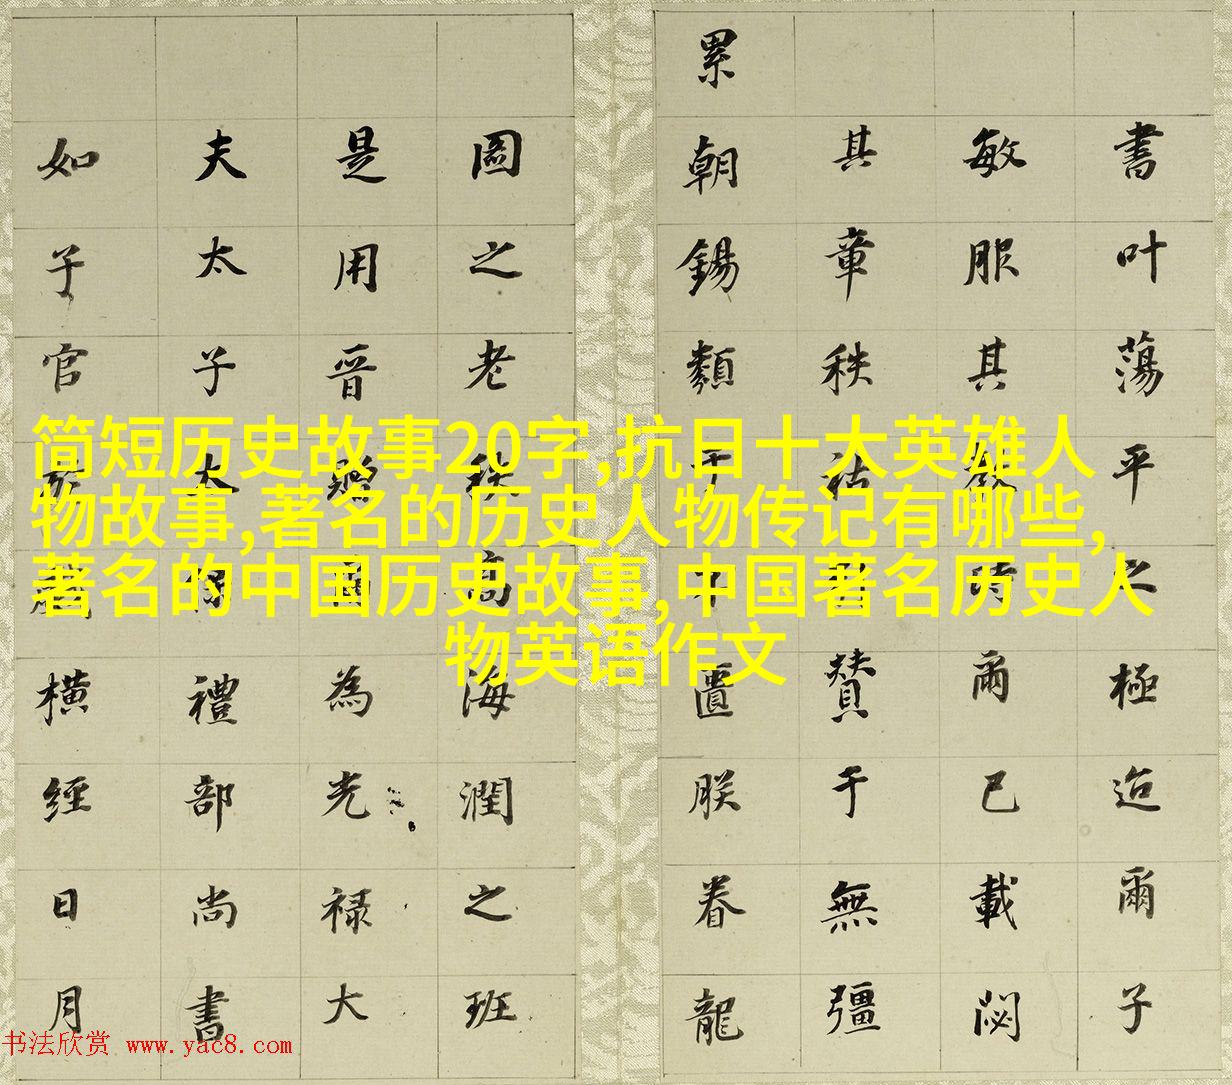 简短历史故事20字,抗日十大英雄人
物故事,著名的历史人物传记有哪些,
著名的中国历史故事,中国著名历史人
物英语作文
書叶蕩平之極迨爾子
敏服其爾已載閟
其章秩祜贊于無疆
累朝錫類于不匱朕眷龍
圖之老秩高海潤之班
是用晋爾為光禄大
夫太子太保禮部尚書
如子官橫經日月
书法欣赏 www.yac8.com